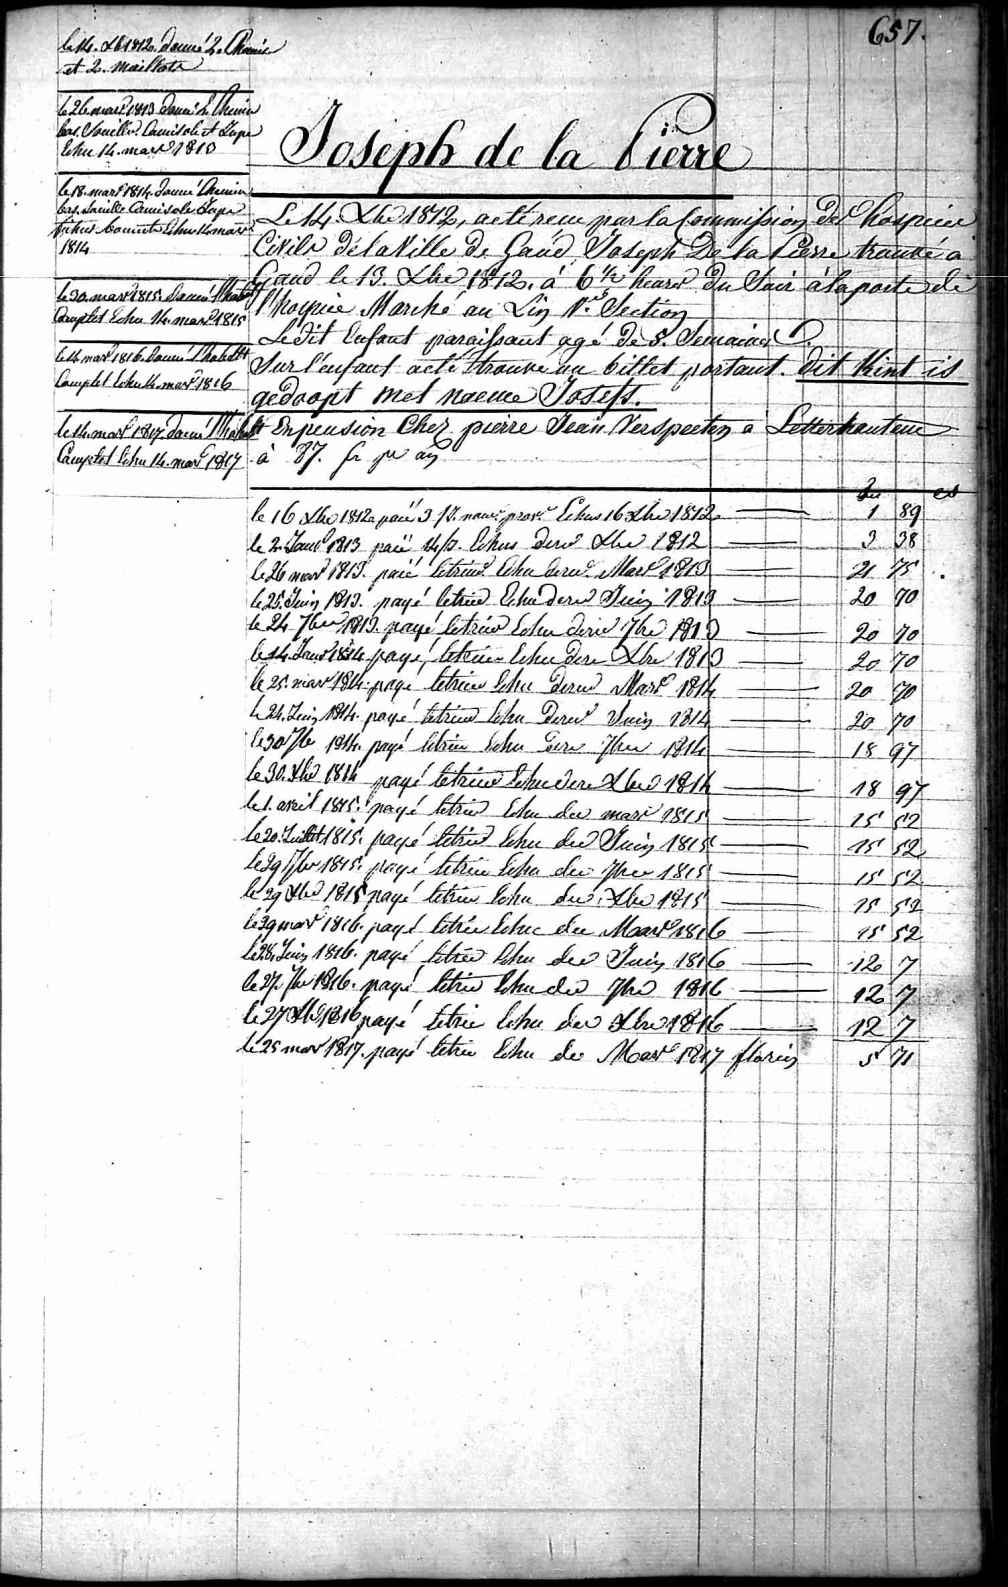 657.
le 14. Xb 1812. donné 2. Chemis
et 2. maillots
le 26 mars 1813 donné 2 Chemis
bas. Souillé Camisole et Jupe
Echu 14. mars 1813
le 18. mars 1814. donné Chemis
bas. Souille Camisole Jupe
fichus bonnets Echu 14 mars
1814
le 30. mars 1815. donné l'habillt
Complet Echu 14. mars 1815
le 14 mars 1816. donné l'habillt
Complet Echu 14. mars 1816
le 14. mars 1817. donné l'habillt
Complet Echu 14. mars 1817
Joseph de la Pierre
Le 14. Xbre 1812, a eté recu par la Commission des hospices
Civils de la Ville de Gand, Joseph De la Pierre trouvé à
Gand le 13. Xbre 1812. à 6 1/2 heures du Soir à la porte de
l'hospice Marché au Lin 1e Section
Le dit Enfant paraissant agé de 8. Semaines
Sur l'enfant a eté trouvé un billet portant. dit Kint is
gedoopt met naeme Josefs.
En pension Chez pierre Jean Verspeeten à Letterhautem
à 87. fr pr an
le 16 Xbre 1812 paié 3 fs. nour. prov. Echus 16 Xbre 1812 1 89
le 2. Janr 1813 paié 14 js. Echus derer Xbre 1812 3 38
le 26 mars 1813. paié letrier. Echu derer. Mars 1813 21 75
le 25. Juin 1813. payé letrier Echu derer Juin 1813 20 70
le 24 7bre 1813. payé letrier Echu derer 7bre 1813 20 70
le 14. Janr 1814. payé letrier Echu derer Xbre 1813 20 70
le 25. mars 1814. payé letrier Echu derer Mars 1814 20 70
le 24. Juin 1814. payé letrier Echu derer Juin 1814 20 70
le 30 7b 1814. payé letrier Echu derer 7bre 1814 18 97
le 30. Xbre 1814 payé letrier Echu derer Xbre 1814 18 97
le 1. avril 1815. payé letrier Echu der mars 1815 15 52
le 20. Juillet 1815. payé letrier Echu der Juin 1815 15 52
le 29 7bre 1815. payé letrier Echu der 7bre 1815 15 52
le 29 Xbre 1815 payé letrier Echu der Xbre 1815 15 52
le 29 mars 1816. payé letrier Echu der Mars 1816 15 52
le 28. Juin 1816. payé letrier Echu der Juin 1816 12 7
le 27 7bre 1816. payé letrier Echu der 7bre 1816 12 7
le 27 Xbre 1816 payé letrier Echu der Xbre 1816 12 7
le 25 mars 1817. payé letrier Echu de Mars 1817 florins 5 71